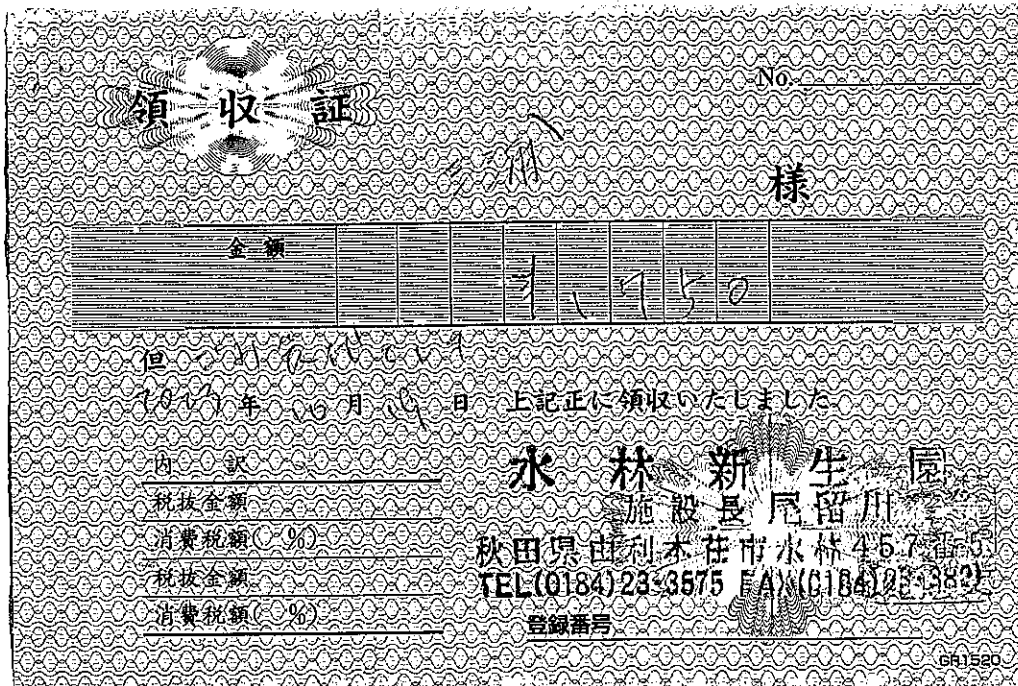 領収証
No.
三浦 様
金額 ¥1,750
但
2023年 10月 19日 上記正に領収いたしました
内訳
税抜金額
消費税額( %)
税抜金額
消費税額( %)
水林新生園
施設長 尾留川
秋田県由利本荘市水林457番5
TEL(0184)23-3575 FAX(0184)
登録番号
GR1520